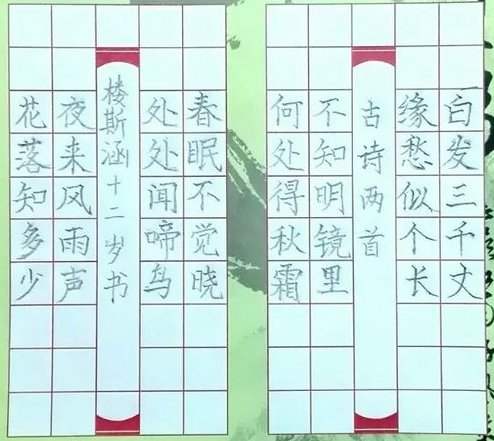 白发三千丈
缘愁似个长
古诗两首
不知明镜里
何处得秋霜
春眠不觉晓
处处闻啼鸟
楼斯涵十二岁书
夜来风雨声
花落知多少